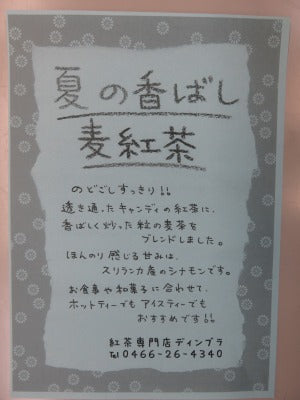 夏の香ばし
麦紅茶
のどごしすっきり!!
透き通ったキャンディの紅茶に、
香ばしく炒った粒の麦茶を
ブレンドしました。
ほんのり感じる甘みは、
スリランカ産のシナモンです。
お食事や和菓子に合わせて、
ホットティーでもアイスティーでも
おすすめです!!
紅茶専門店ディンブラ
℡0466-26-4340